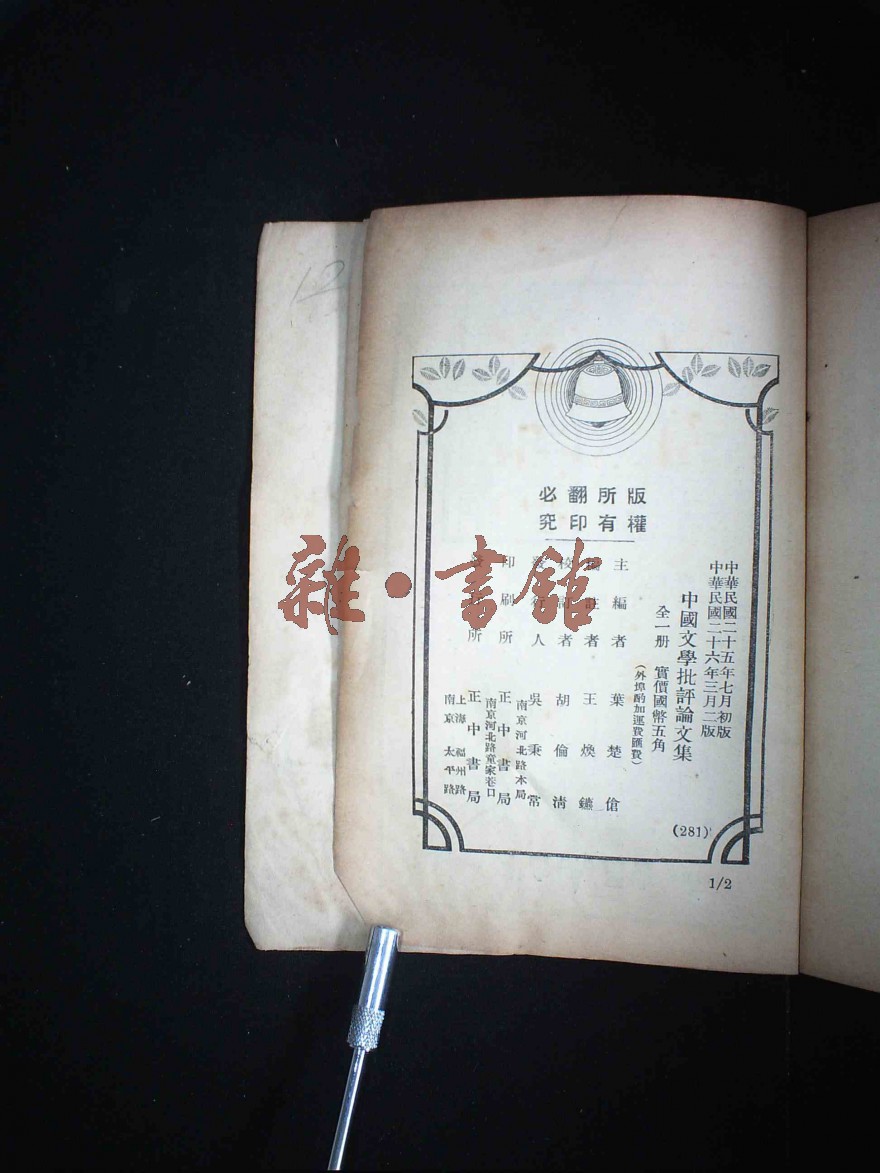 中華民國二十五年七月初版
中華民國二十六年三月二版
中國文學批評論文集
全一册 實價國幣五角
(外埠酌加運費匯費)
主編者 葉楚傖
註者 王煥鑣
校訂者 胡倫清
發行人 吳秉常
南京河北路本局
印刷所 正中書局
南京河北路童家巷口
發行所 正中書局
上海福州路
南京太平路
版權所有
翻印必究
(281)
1/2
12
雜·書館